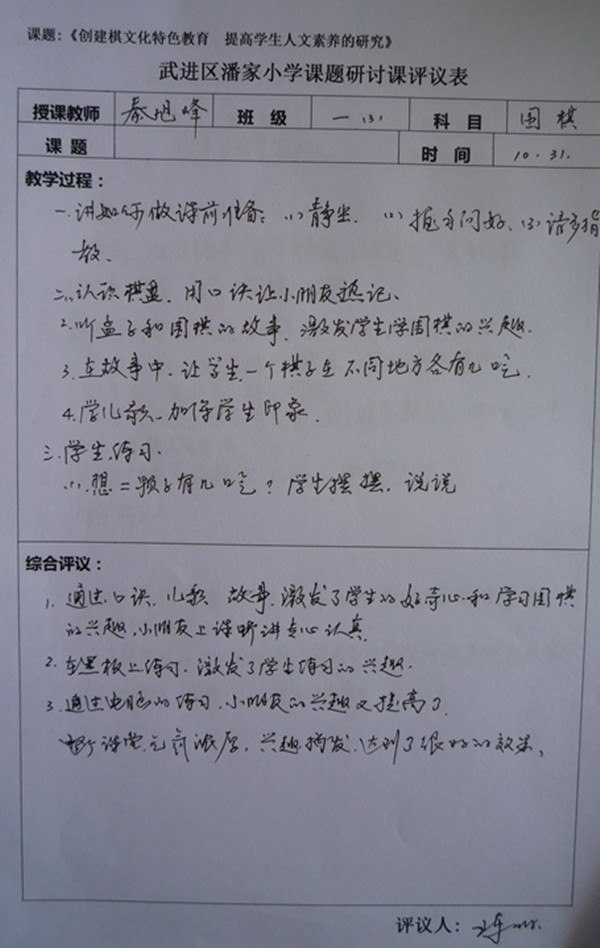 课题：《创建棋文化特色教育　提高学生人文素养的研究》
武进区潘家小学课题研讨课评议表
授课教师 秦旭峰 班 级 一（3） 科 目 围棋
课 题 时 间 10.31.
教学过程：
一.讲如何做课前准备：（1）静坐.（2）握手问好、（3）请多指
教.
二、认识棋盘，用口诀让小朋友熟记、
2.听盒子和围棋的故事，激发学生学围棋的兴趣.
3.在故事中.让学生.一个棋子在不同地方各有几气.
4.学儿歌.加深学生印象.
三.学生练习.
（1）.想二颗子有几口气？学生摆摆.说说
综合评议：
1.通过口诀.儿歌 故事.激发了学生的好奇心和学习围棋
的兴趣.小朋友上课听讲专心认真
2.在黑板上练习.激发了学生练习的兴趣.
3.通过电脑的练习.小朋友的兴趣又提高了.
整个课堂气氛浓厚，兴趣 达到了很好的效果、
评议人：